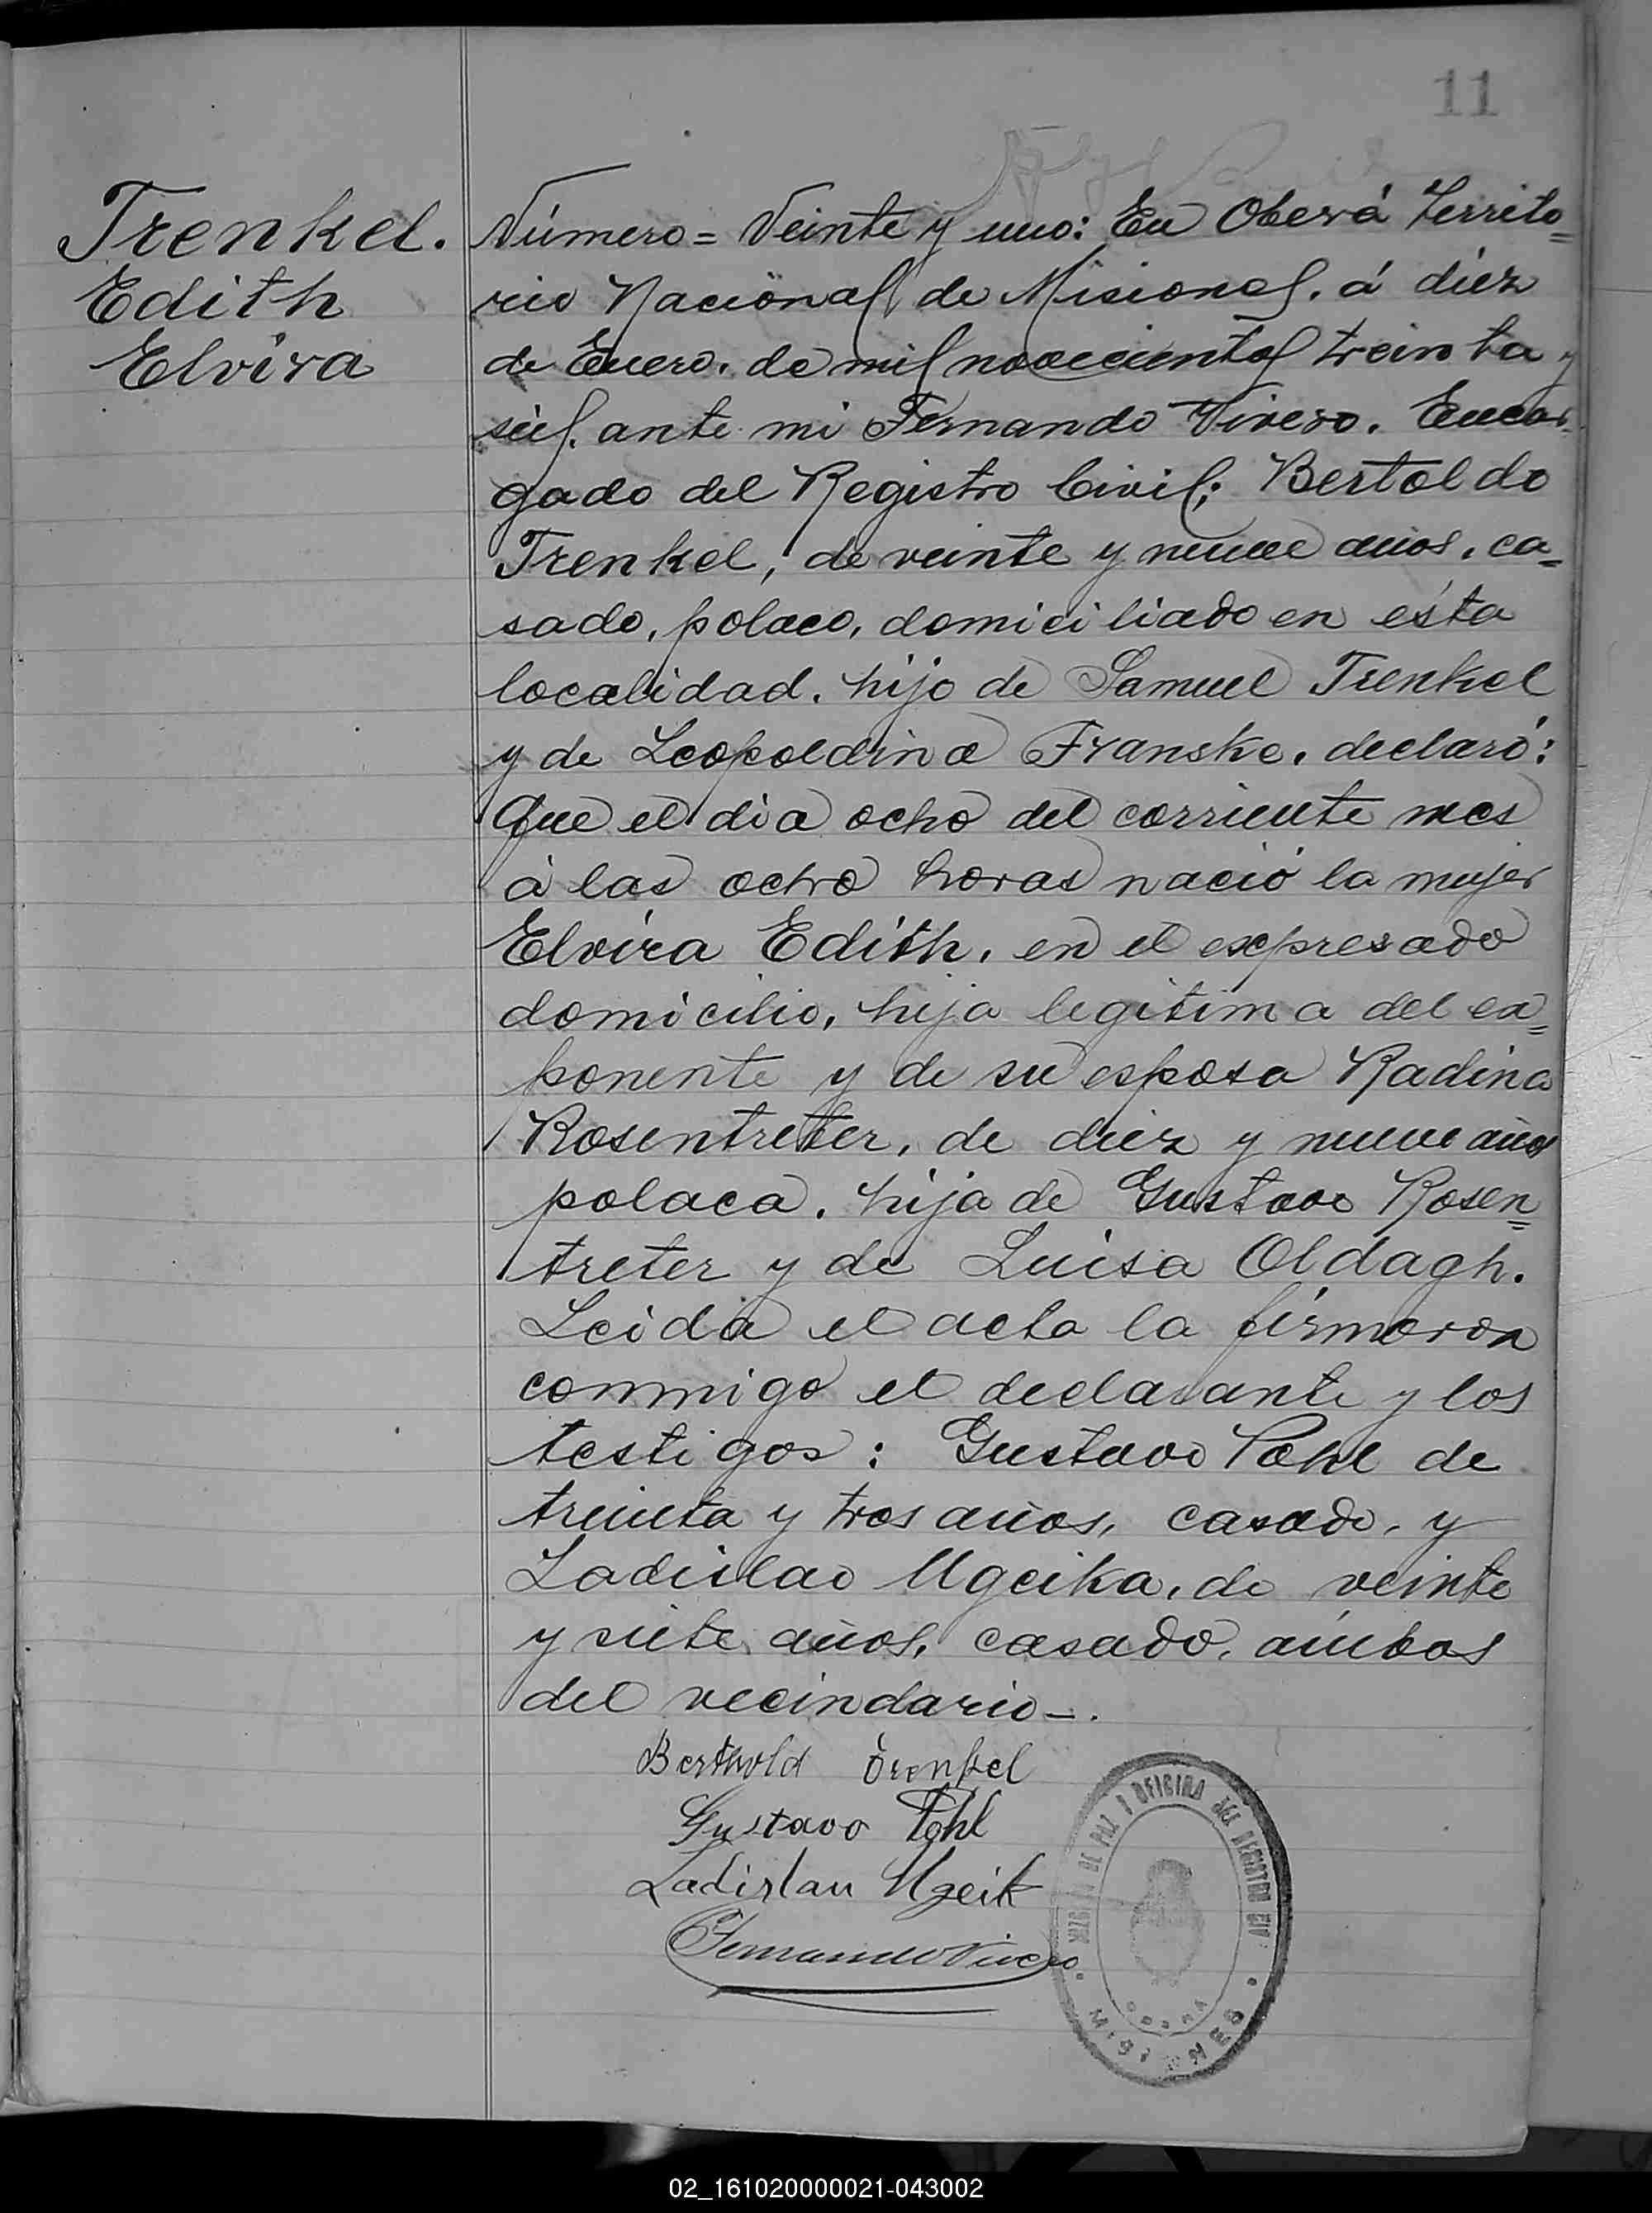 11
Trenkel.
Edith
Elvira
Número = Veinte y uno: En Oberá Territo=
rio Nacional de Misiones. á diez
de Enero. de mil novecientos treinta y
seis. ante mi Fernando Vivero. Encar=
gado del Registro Civil; Bertoldo
Trenkel, de veinte y nueve años, ca=
sado, polaco, domiciliado en ésta
localidad. hijo de Samuel Trenkel
y de Leopoldina Franske. declaró:
Que el dia ocho del corriente mes
á las ocho horas nació la mujer
Elvira Edith, en el expresado
domicilio, hija legitima del ex=
ponente y de su esposa Radina
Rosentreter, de diez y nueve años
polaca. hija de Gustavo Rosen=
treter y de Luisa Oldagh.
Leida el acta la firmaron
conmigo el declarante y los
testigos: Gustavo Pohl de
treinta y tres años, casado, y
Ladislao Ugeika, de veinte
y siete años, casado, ámbos
del vecindario-.
Berthold Trenkel
Gustavo Pohl
Ladislau Ugeik
Fernando Vivero
JUZGADO DE PAZ Y OFICINA DEL REGISTRO CIVIL
OBERA
MISIONES
02_161020000021-043002